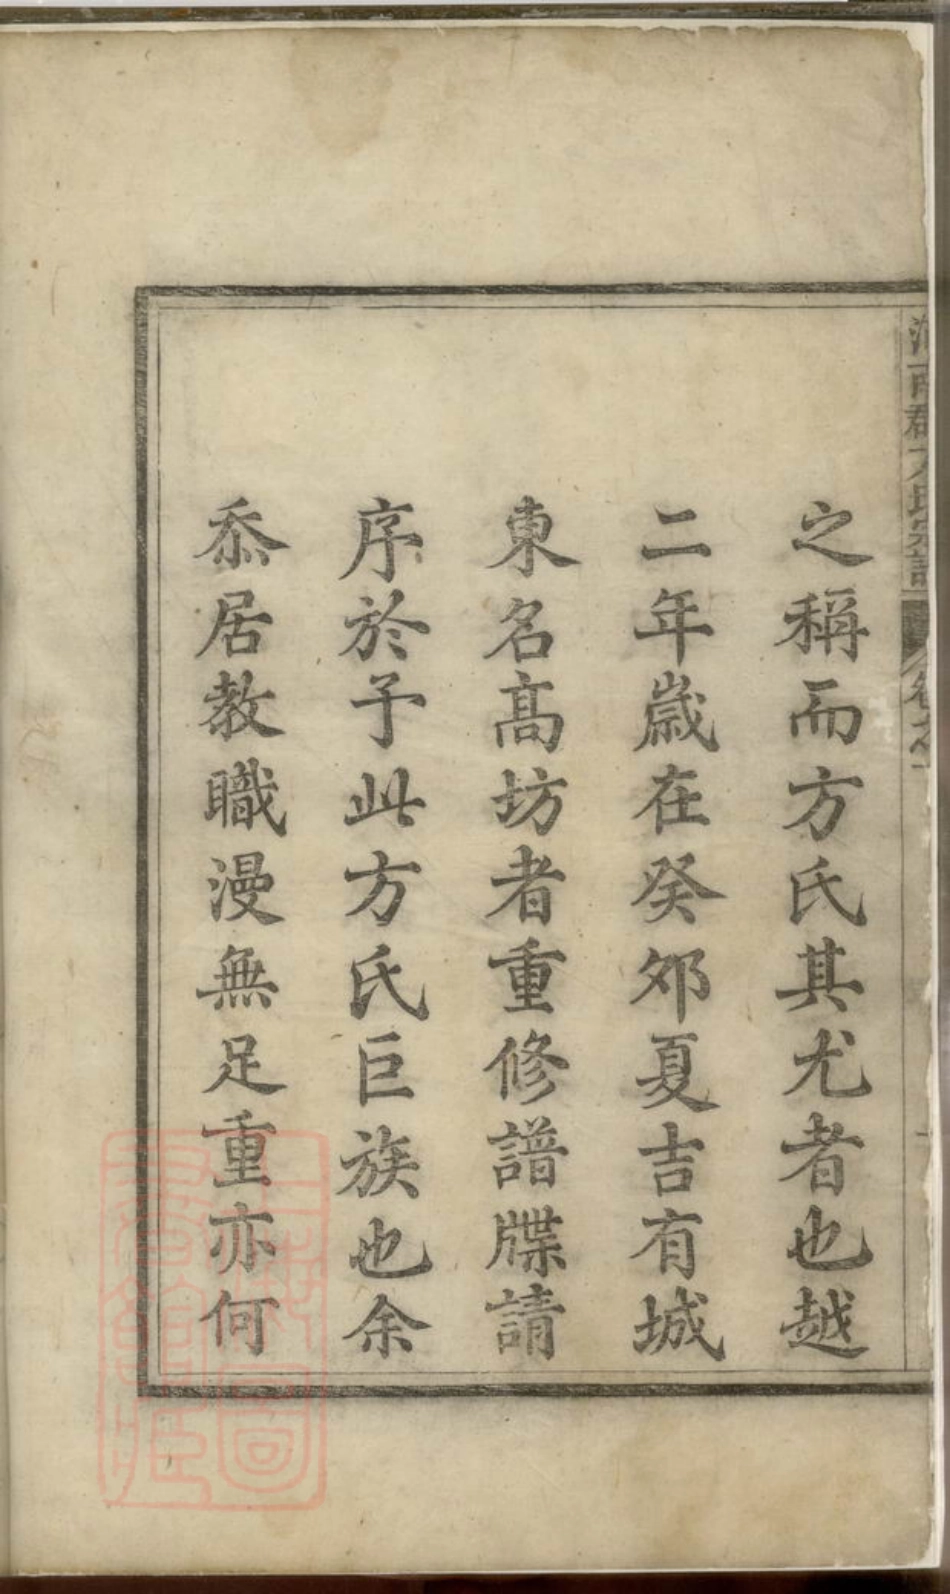 之稱而方氏其尤者也越
二年歲在癸夘夏吉有城
東名髙坊者重修譜牒請
序於予此方氏巨族也余
忝居教職漫無足重亦何
方氏宗譜
卷之